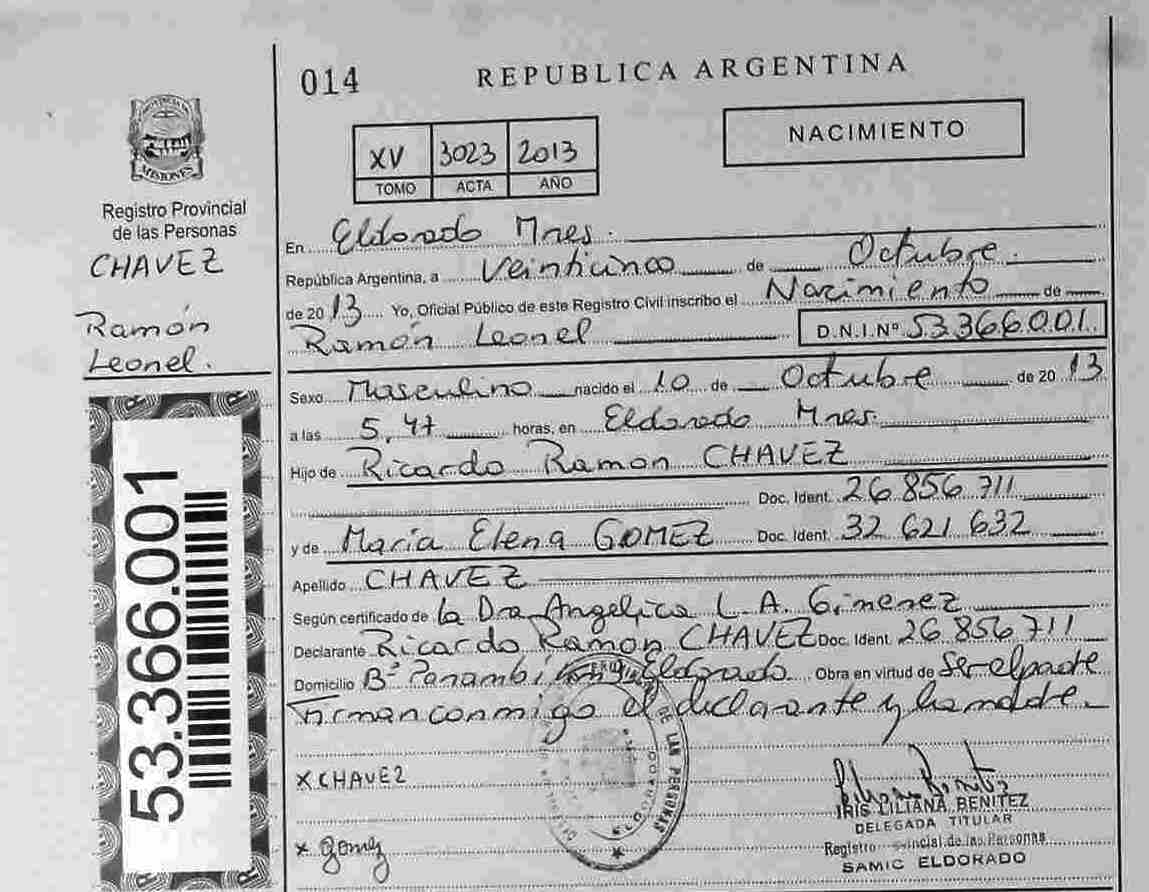 014
REPUBLICA ARGENTINA
XV 3023 2013
TOMO ACTA AÑO
NACIMIENTO
MISIONES
Registro Provincial
de las Personas
CHAVEZ
Ramón
Leonel.
53.366.001
En Eldorado Mnes.
República Argentina, a Veinticinco de Octubre.
de 2013 Yo, Oficial Público de este Registro Civil inscribo el Nacimiento de
Ramón Leonel D.N.I.Nº 53.366.001.
Sexo Masculino nacido el 10 de Octubre de 2013
a las 5,47 horas, en Eldorado Mnes.
Hijo de Ricardo Ramon CHAVEZ
Doc. Ident. 26 856 711
y de Maria Elena GOMEZ Doc. Ident. 32 621 632
Apellido CHAVEZ
Según certificado de la Dra Angelica L. A. Gimenez
Declarante Ricardo Ramon CHAVEZ Doc. Ident. 26 856 711
Domicilio Bº Panambi Eldorado Obra en virtud de ser el padre
Firman conmigo el declarante y la madre.
X CHAVEZ
DE LAS PERSONAS
ELDORADO
IRIS LILIANA BENITEZ
DELEGADA TITULAR
Registro Provincial de las Personas
SAMIC ELDORADO
x gomez